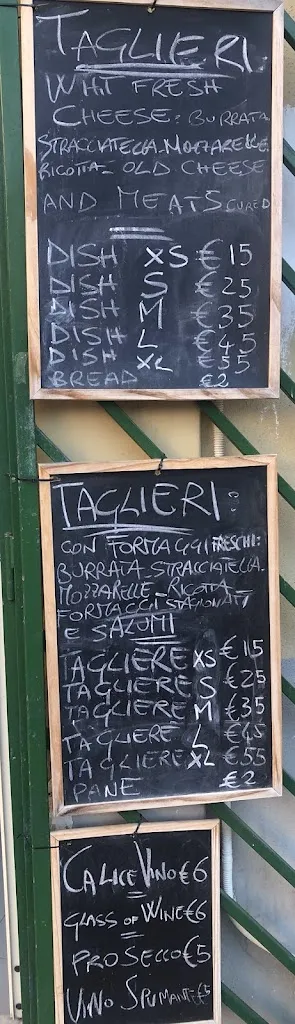 TAGLIERI
WHIT FRESH
CHEESE: BURRATA
STRACCIATELLA. MOZZARELLE
RICOTTA - OLD CHEESE
AND MEATS CURED
DISH XS €15
DISH S €25
DISH M €35
DISH L €45
DISH XL €55
BREAD €2
TAGLIERI:
CON FORMAGGI FRESCHI:
BURRATA STRACCIATELLA
MOZZARELLE - RICOTTA -
FORMAGGI STAGIONATI
E SALUMI
TAGLIERE XS €15
TAGLIERE S €25
TAGLIERE M €35
TAGLIERE L €45
TAGLIERE XL €55
PANE €2
CALICE VINO €6
GLASS OF WINE €6
PROSECCO €5
VINO SPUMANTE €5